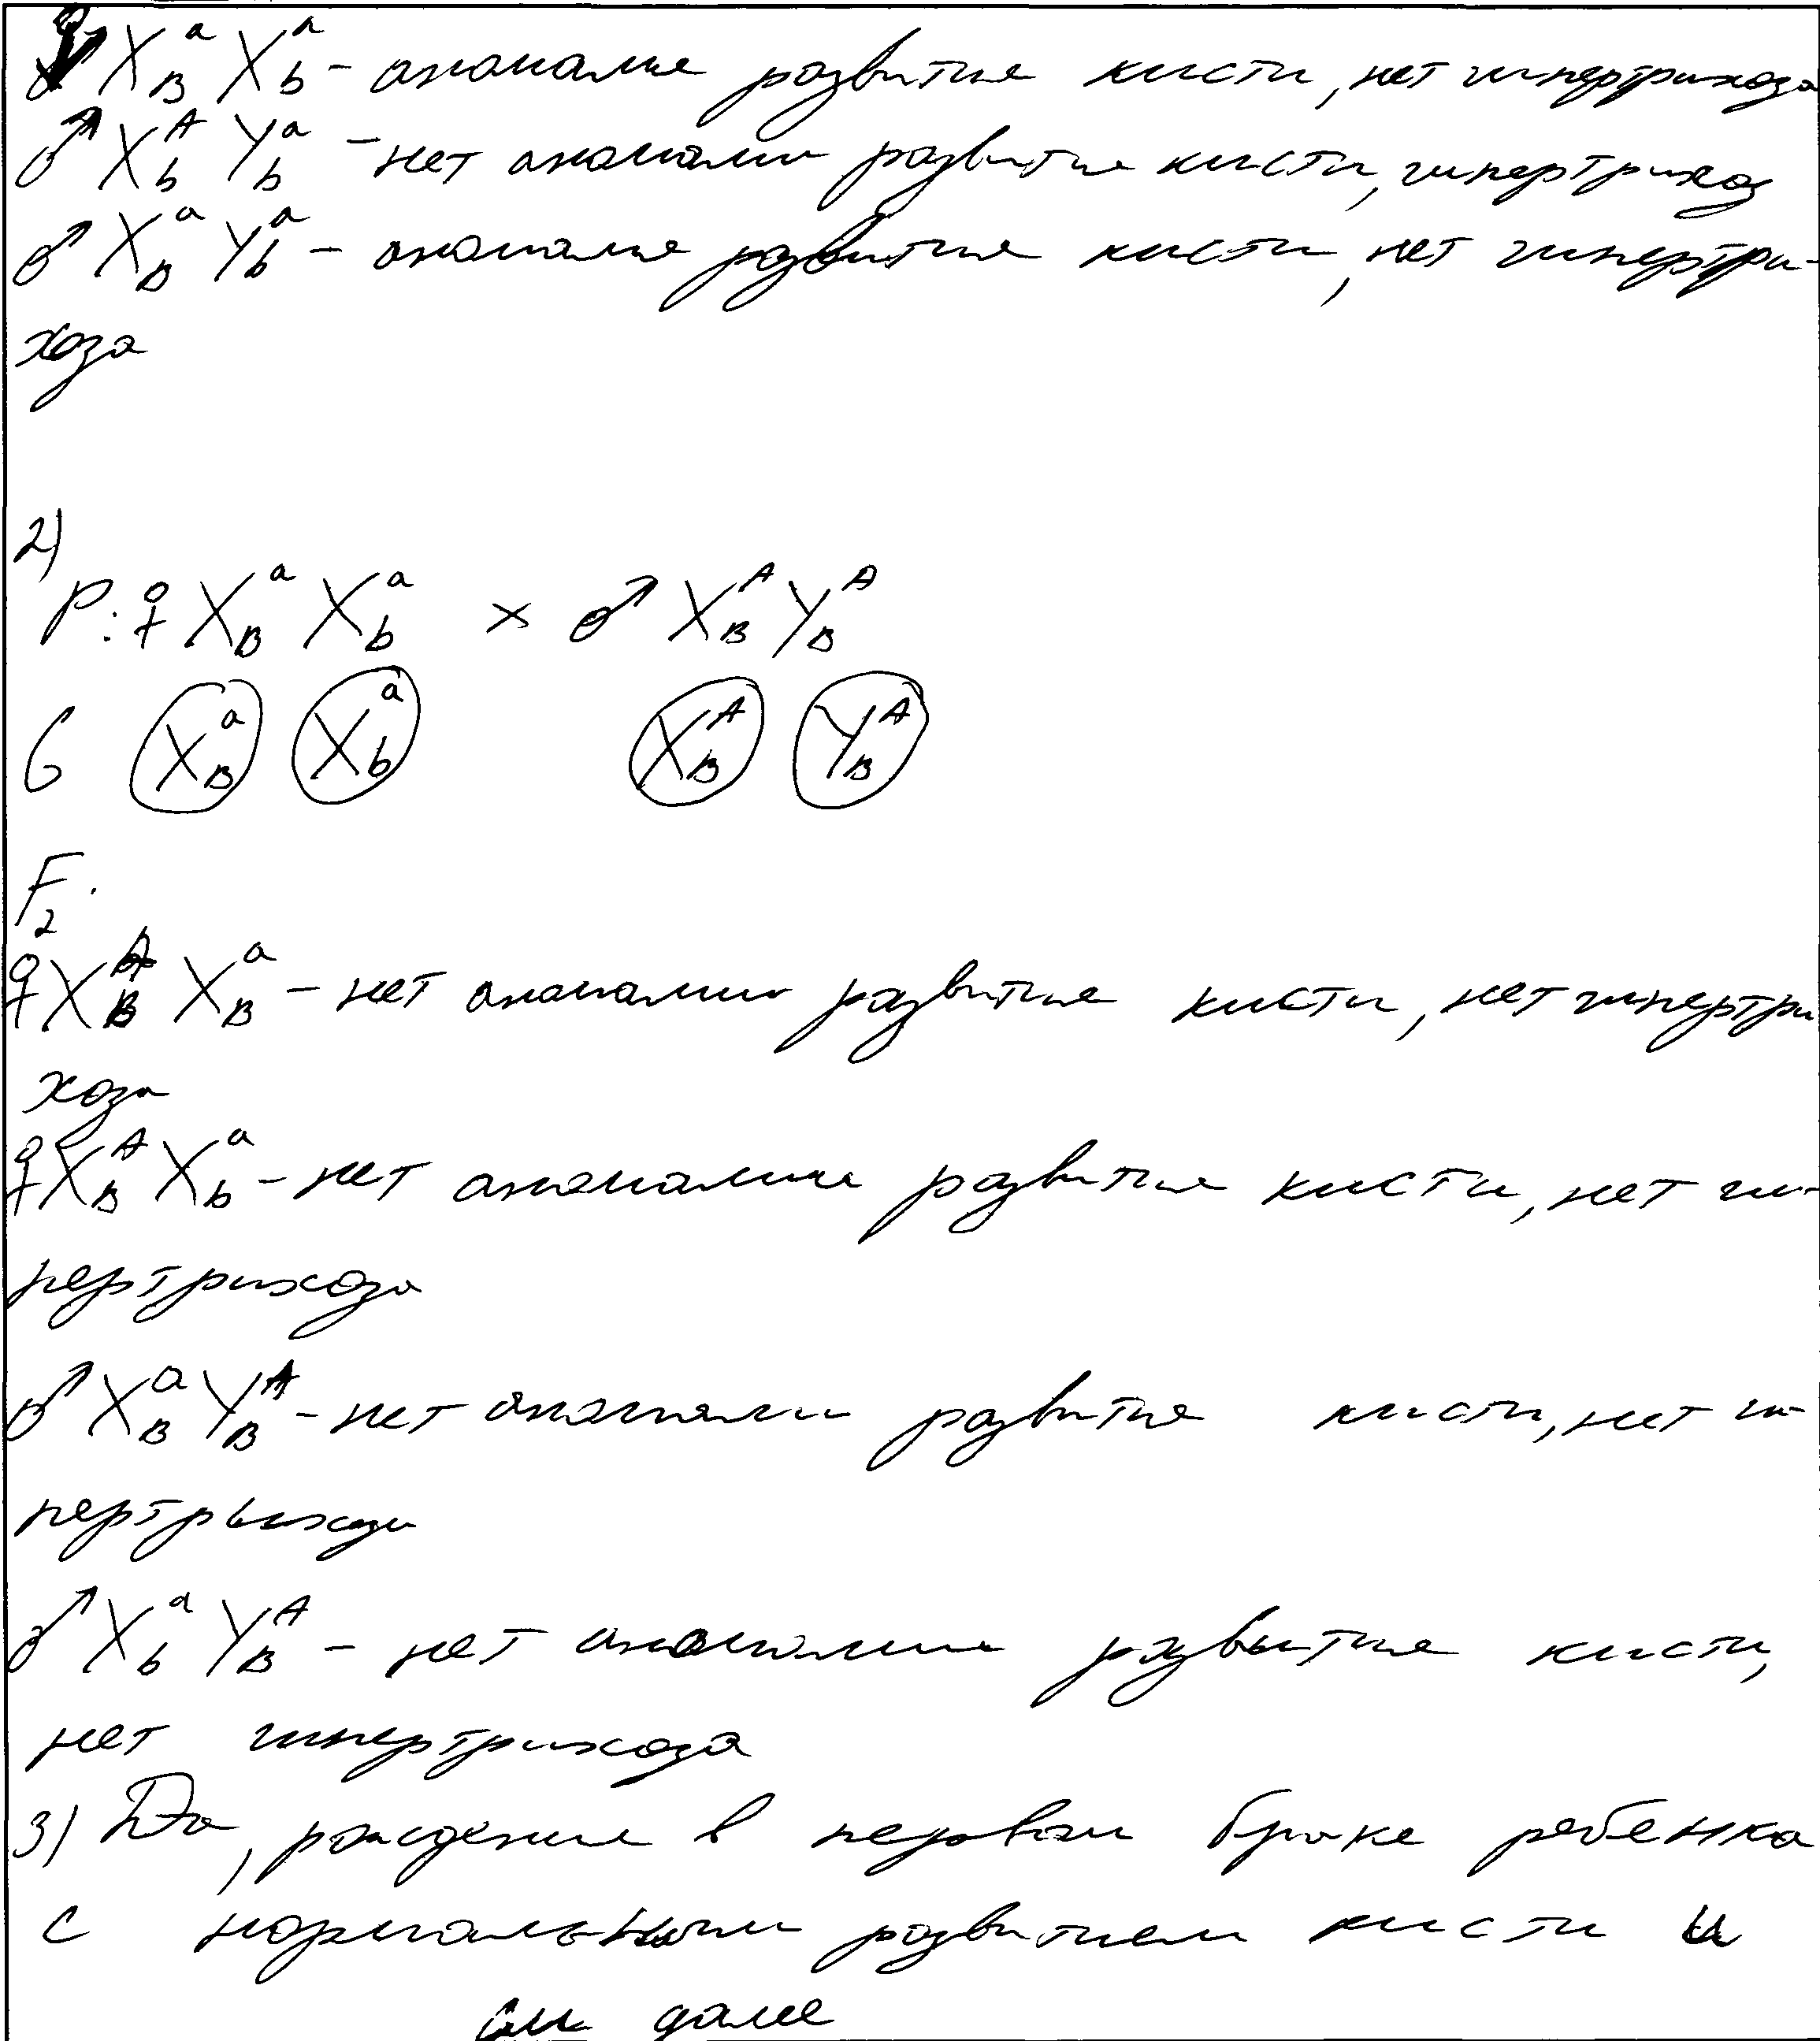 ♀ X_B^a X_b^a - аномалия развития кисти, нет гипертрихоза
♂ X_b^A Y_b^a - нет аномалии развития кисти, гипертрихоз
♂ X_B^a Y_b^a - аномалия развития кисти, нет гипертри-
хоза
2)
P: ♀ X_B^a X_b^a × ♂ X_B^A Y_B^A
G X_B^a X_b^a X_B^A Y_B^A
F_2:
♀ X_B^A X_B^a - нет аномалии развития кисти, нет гипертри
хоза
♀ X_B^A X_b^a - нет аномалии развития кисти, нет ги-
пертрихоза
♂ X_B^a Y_B^A - нет аномалии развития кисти, нет ги-
пертрихоза
♂ X_b^a Y_B^A - нет аномалии развития кисти,
нет гипертрихоза
3) Да, рождение в первом браке ребенка
с нормальным развитием кисти и
см далее